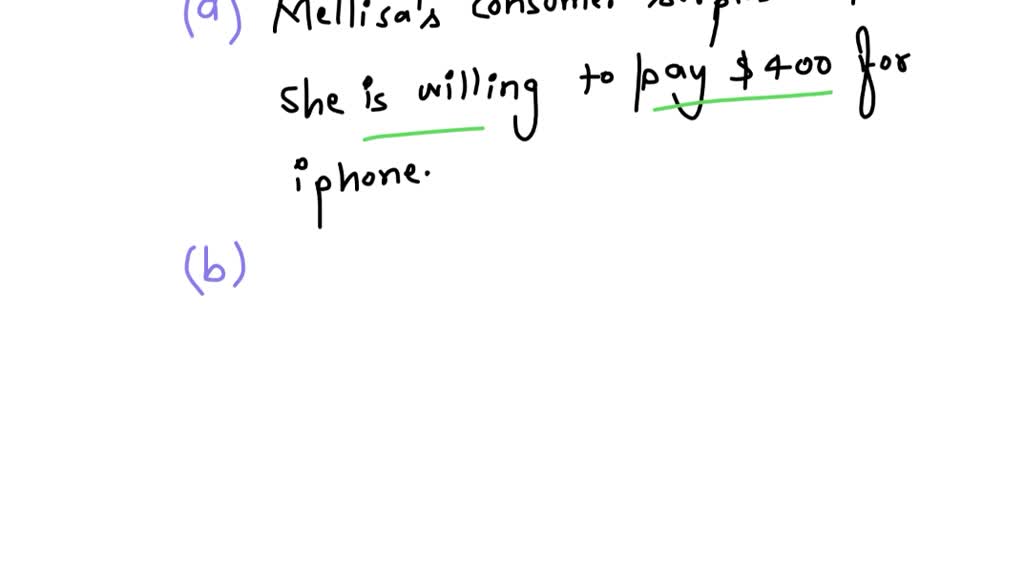 (a) Mellisa's consumer
she is willing to pay $400 for
iphone.
(b)